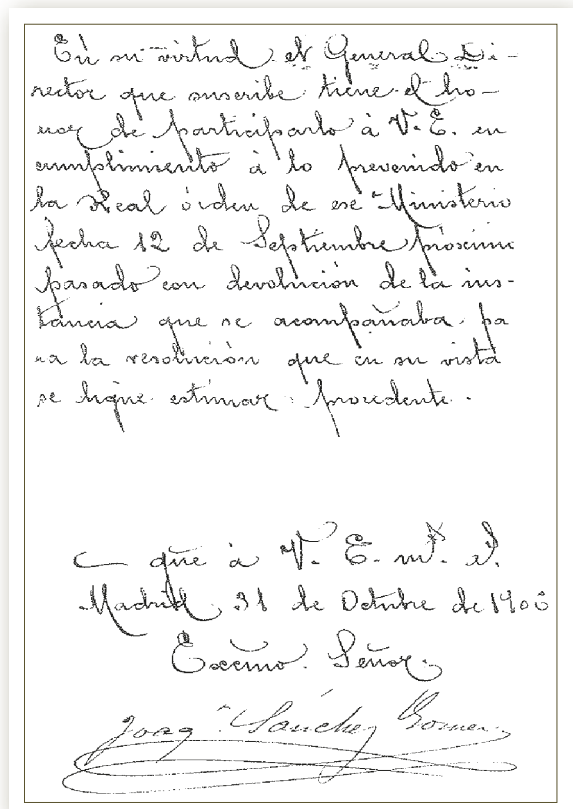 En su virtud el General Di-
rector que suscribe tiene el ho-
nor de participarlo à V. E. en
cumplimiento à lo prevenido en
la Real órden de ese Ministerio
fecha 12 de Septiembre próximo
pasado con devolución de la ins-
tancia que se acompañaba pa
ra la resolución que en su vista
se digne estimar procedente.
que à V. E. m.s a.s
Madrid 31 de Octubre de 1900
Excmo. Señor.
Joaq.n Sánchez Gomez